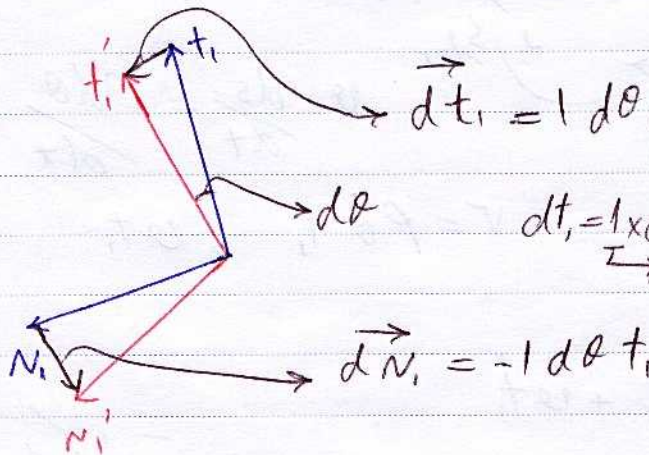 t₁' t₁
dt₁ = 1 dθ
dθ
dt₁ = 1×
N₁
dN₁ = -1 dθ t₁
N₁'